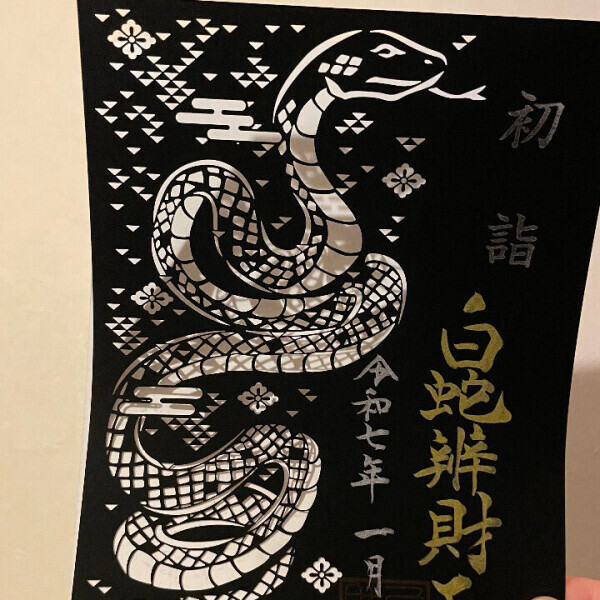 初詣
白蛇辨財
令和七年 一月